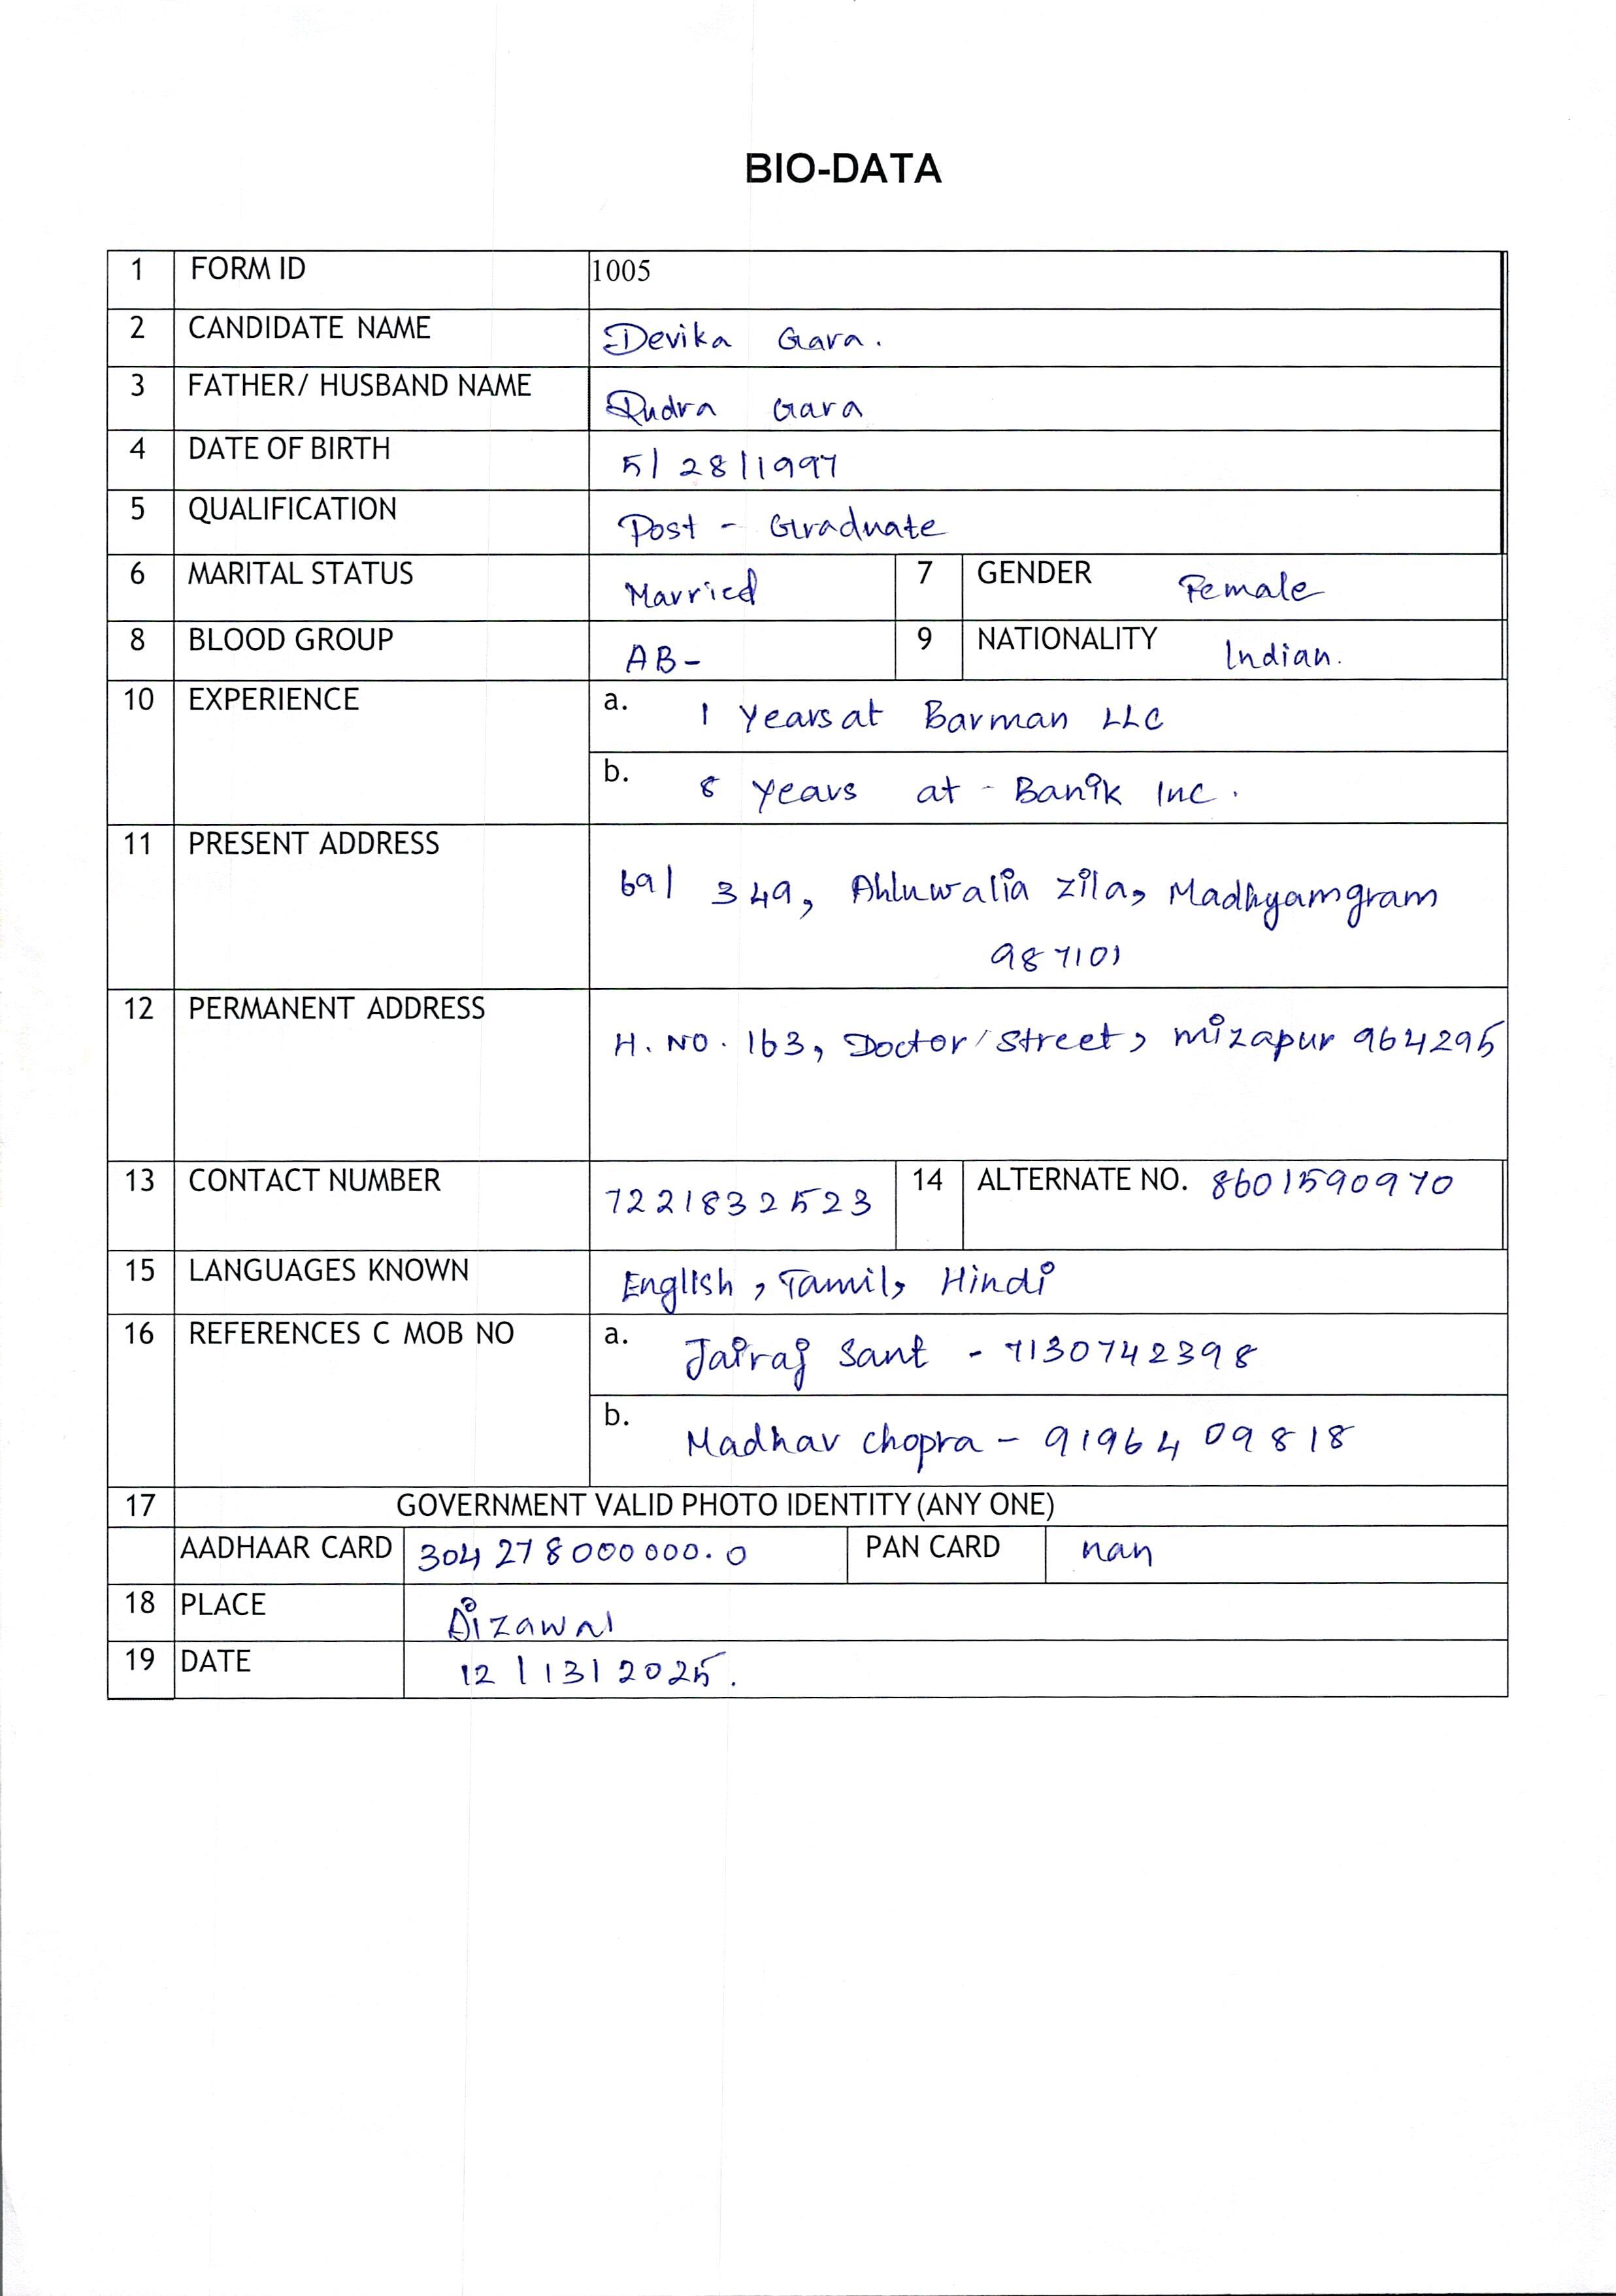 BIO-DATA
1 FORM ID 1005
2 CANDIDATE NAME Devika Gara.
3 FATHER/ HUSBAND NAME Rudra Gara
4 DATE OF BIRTH 5/28/1997
5 QUALIFICATION Post - Graduate
6 MARITAL STATUS Married 7 GENDER Female
8 BLOOD GROUP AB- 9 NATIONALITY Indian.
10 EXPERIENCE a. 1 Years at Barman LLC
b. 8 Years at - Banik Inc.
11 PRESENT ADDRESS
69/ 349, Ahluwalia Zila, Madhyamgram
987101
12 PERMANENT ADDRESS
H. NO. 163, Doctor Street, Mizapur 964295
13 CONTACT NUMBER 7221832523 14 ALTERNATE NO. 8601590970
15 LANGUAGES KNOWN English, Tamil, Hindi
16 REFERENCES C MOB NO a. Jairaj Sant - 7130742398
b. Madhav chopra - 9196409818
17 GOVERNMENT VALID PHOTO IDENTITY (ANY ONE)
AADHAAR CARD 304278000000.0 PAN CARD nan
18 PLACE Aizawal
19 DATE 12/13/2025.